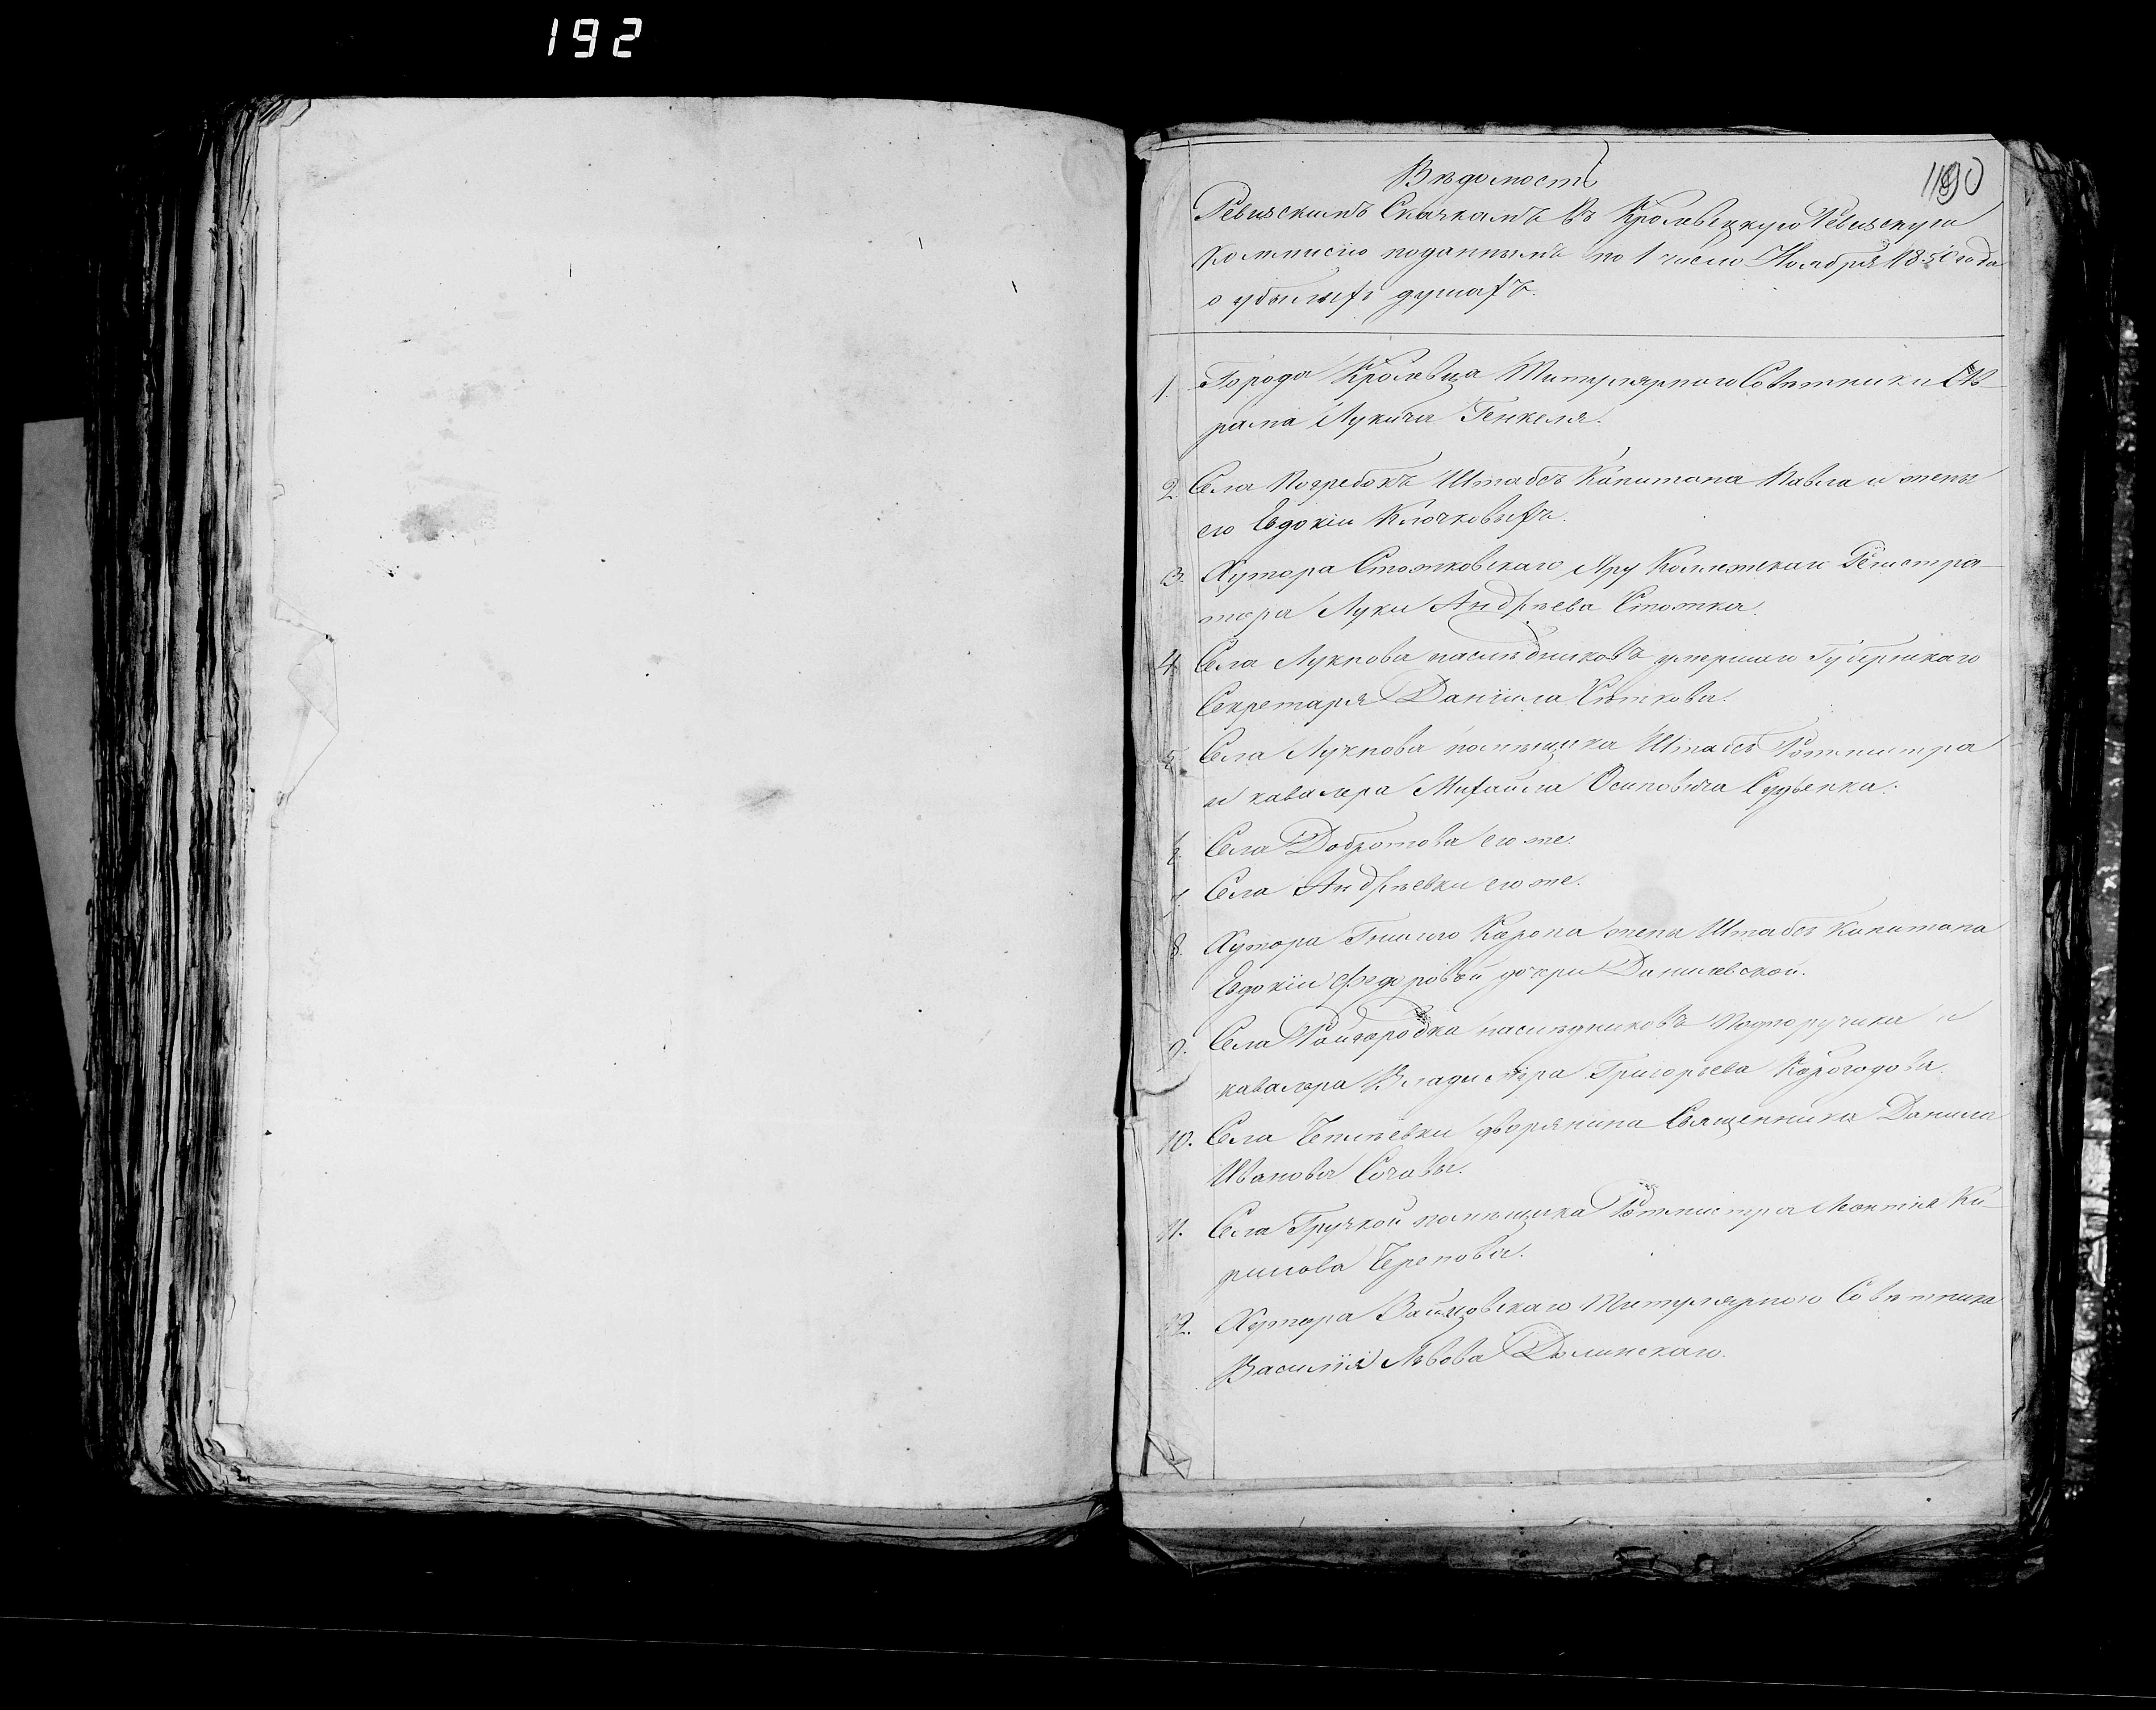 192
190
Вѣдомость
Ревизскимъ Сказкамъ въ Кролевецкую Ревизскую
Коммисію поданнымъ по 1 число Ноября 1850 года
о убылыхъ душахъ.
1. Города Кролевца Титулярного Совѣтника
Лукича Генкеля.
2. Села Погребокъ Штабсъ Капитана Павла и жены
его Евдокіи Клочковыхъ.
3. Хутора Стожковскаго Яру Коллежскаго Регистра-
тора Луки Андрѣева Стожка.
4. Села Лукнова наслѣдниковъ умершаго Губернскаго
Секретаря Даніила
5. Села Лукнова помѣщика Штабсъ Ротмистра
и кавалера Михаила Осиповича Судіенка.
6. Села Добротова его же.
7. Села Андрѣевки его же.
8. Хутора Гнилого Коропа жены Штабсъ Капитана
Евдокіи Федоровой дочери Данилевской.
9. Села Райгородка наслѣдниковъ Подпоручика и
кавалера Владимѣра Григорьева Карогодова.
10. Села Чепліевки дворянина Священника Данила
Иванова Сочавы.
11. Села Грузкой помѣщика Ротмистра Леонтія Ки-
рилова Черепова.
12. Хутора Титулярного Совѣтника
Василія Львова Долинскаго.